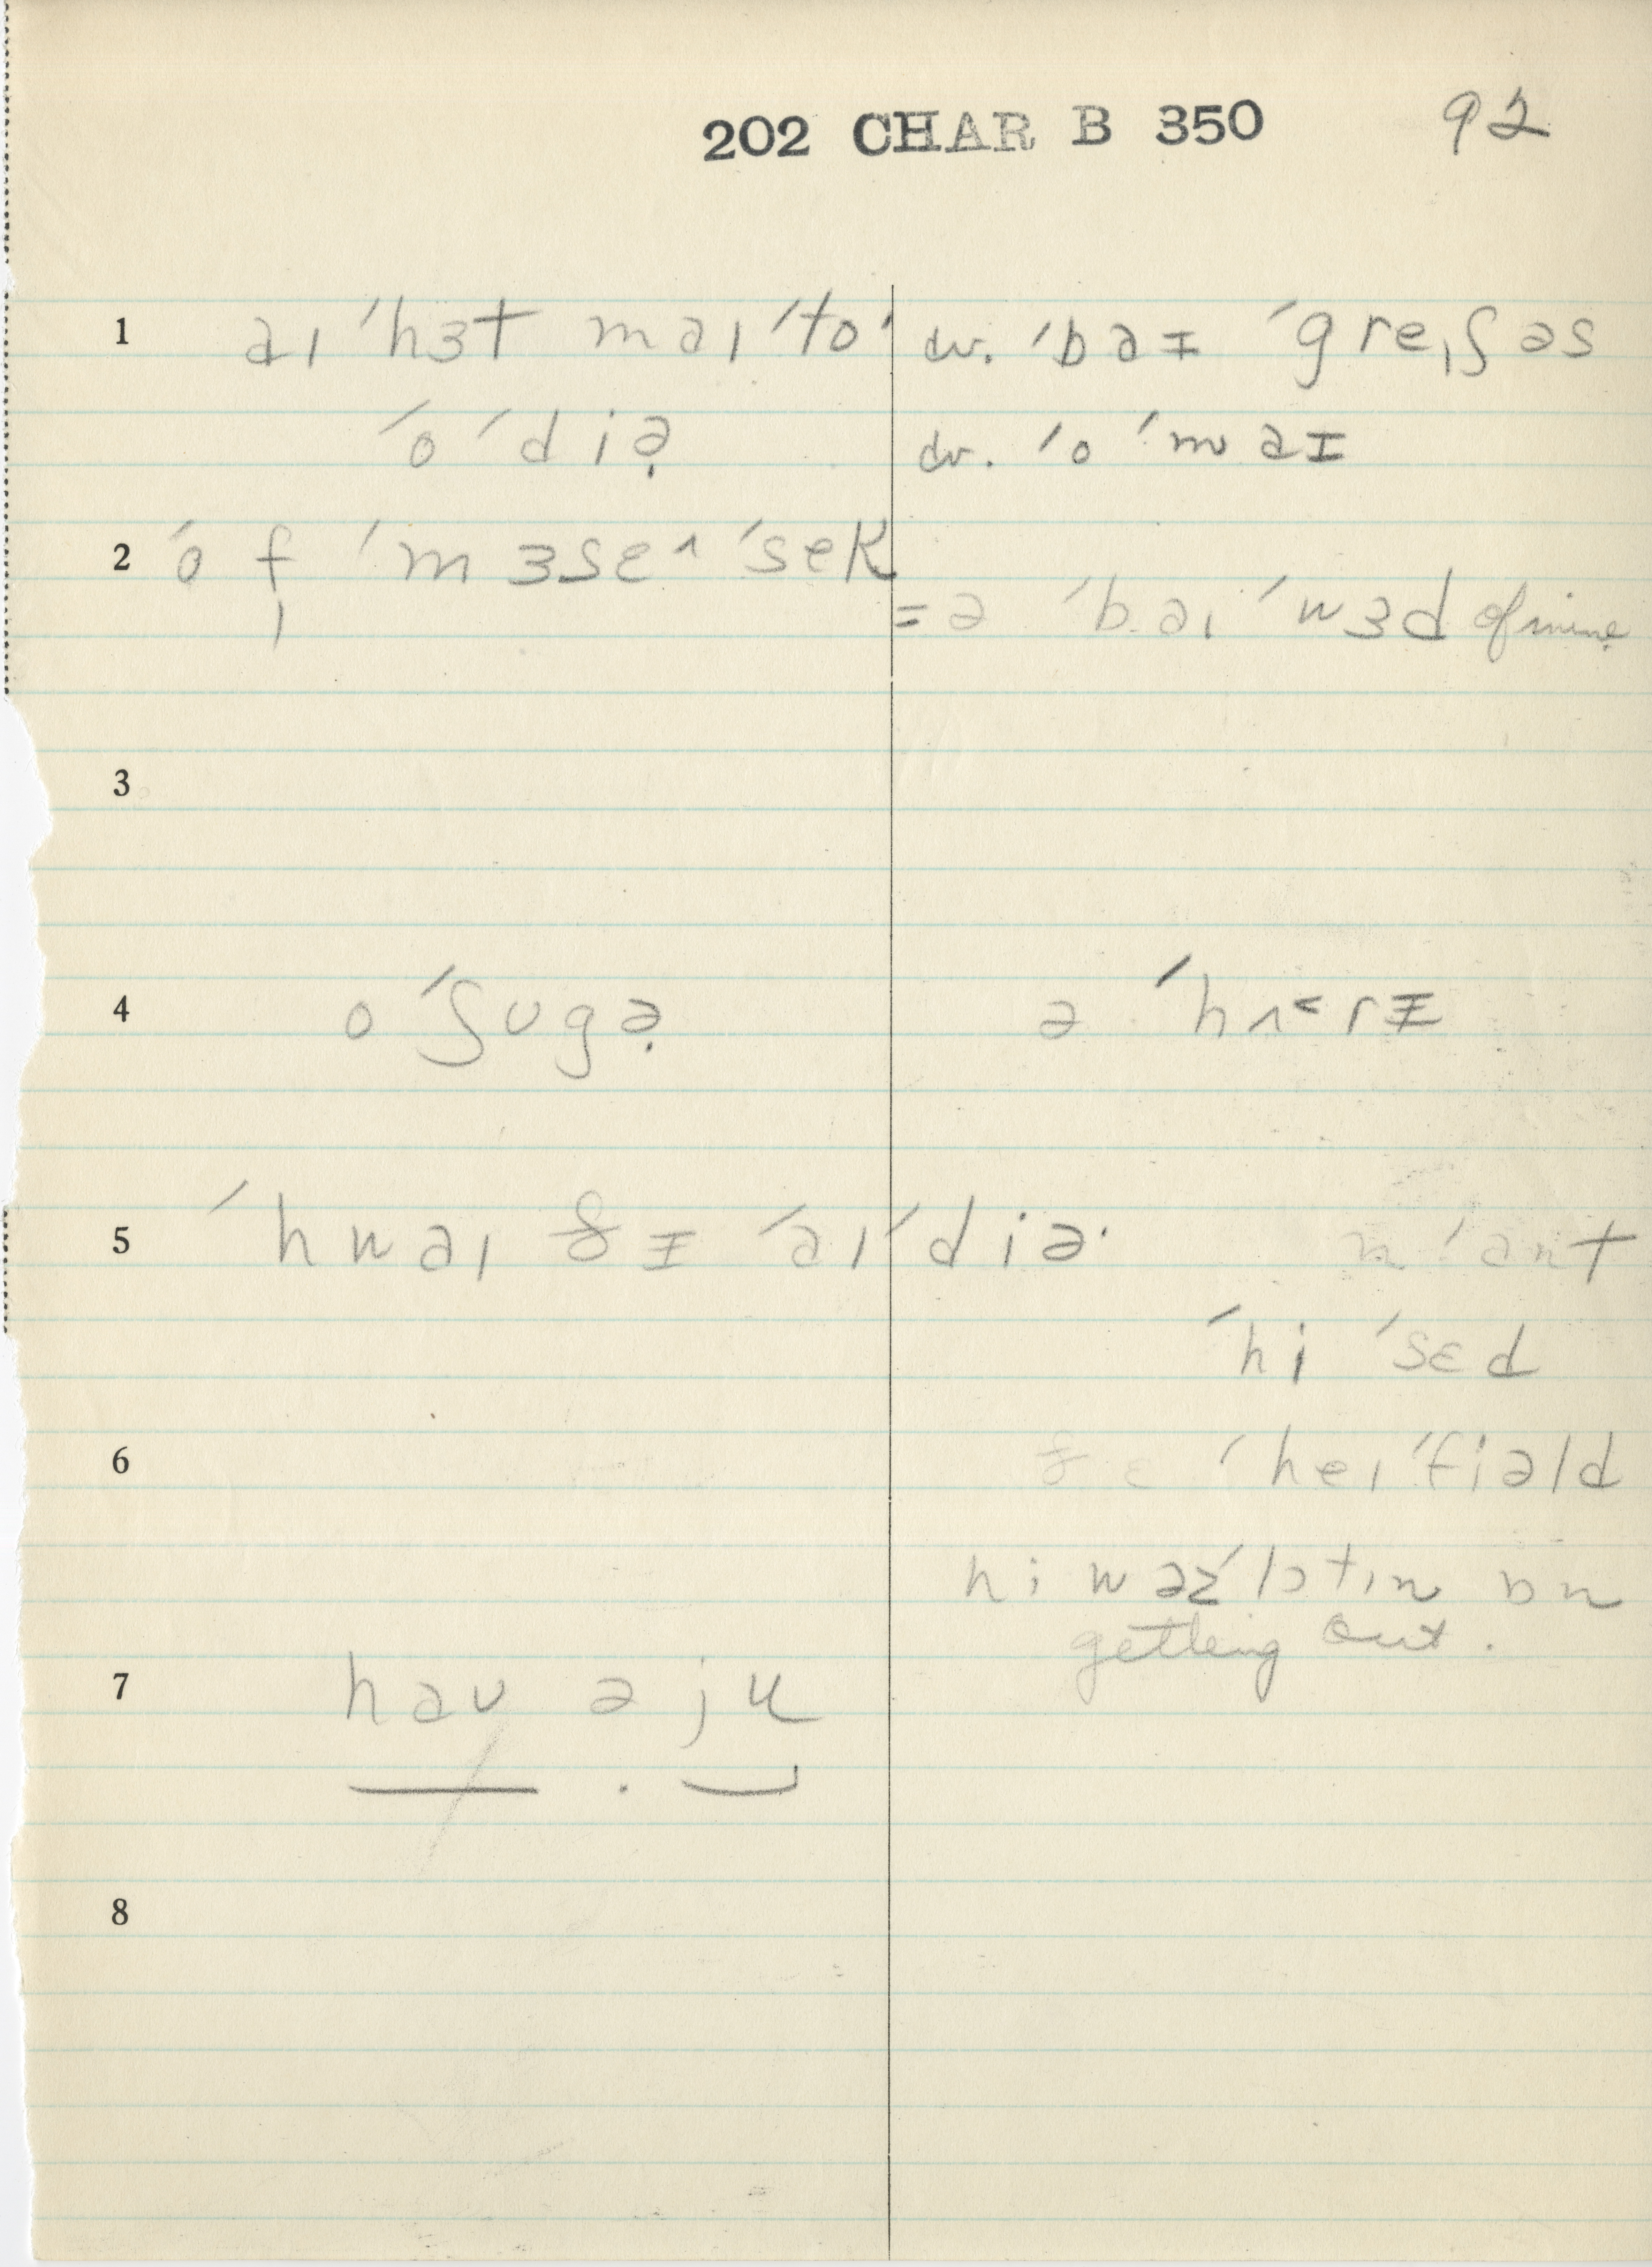 202 CHAR B 350 92
1 aɪ ˈhɜt maɪ ˈto· cv. ˈbaɪ ˈgreɪʃəs
ˈo ˈdiə̣ cv. ˈo ˈmaɪ
2 ˈo f ˈmɜsɛ˄ ˈsek
= ə ˈbaɪ ˈwɜd of mine
3
4 o ˈʃʊgə̣ ə ˈhʌ˂rɪ
5 ˈhwaɪ ðɪ ˈaɪˈdiə· n ˈant
ˈhi ˈsɛd
6 ðɛ ˈheɪˈfiəld
hi wəzˈlɔtɪn ɒn
getting out.
7 haʊ ə ju
8